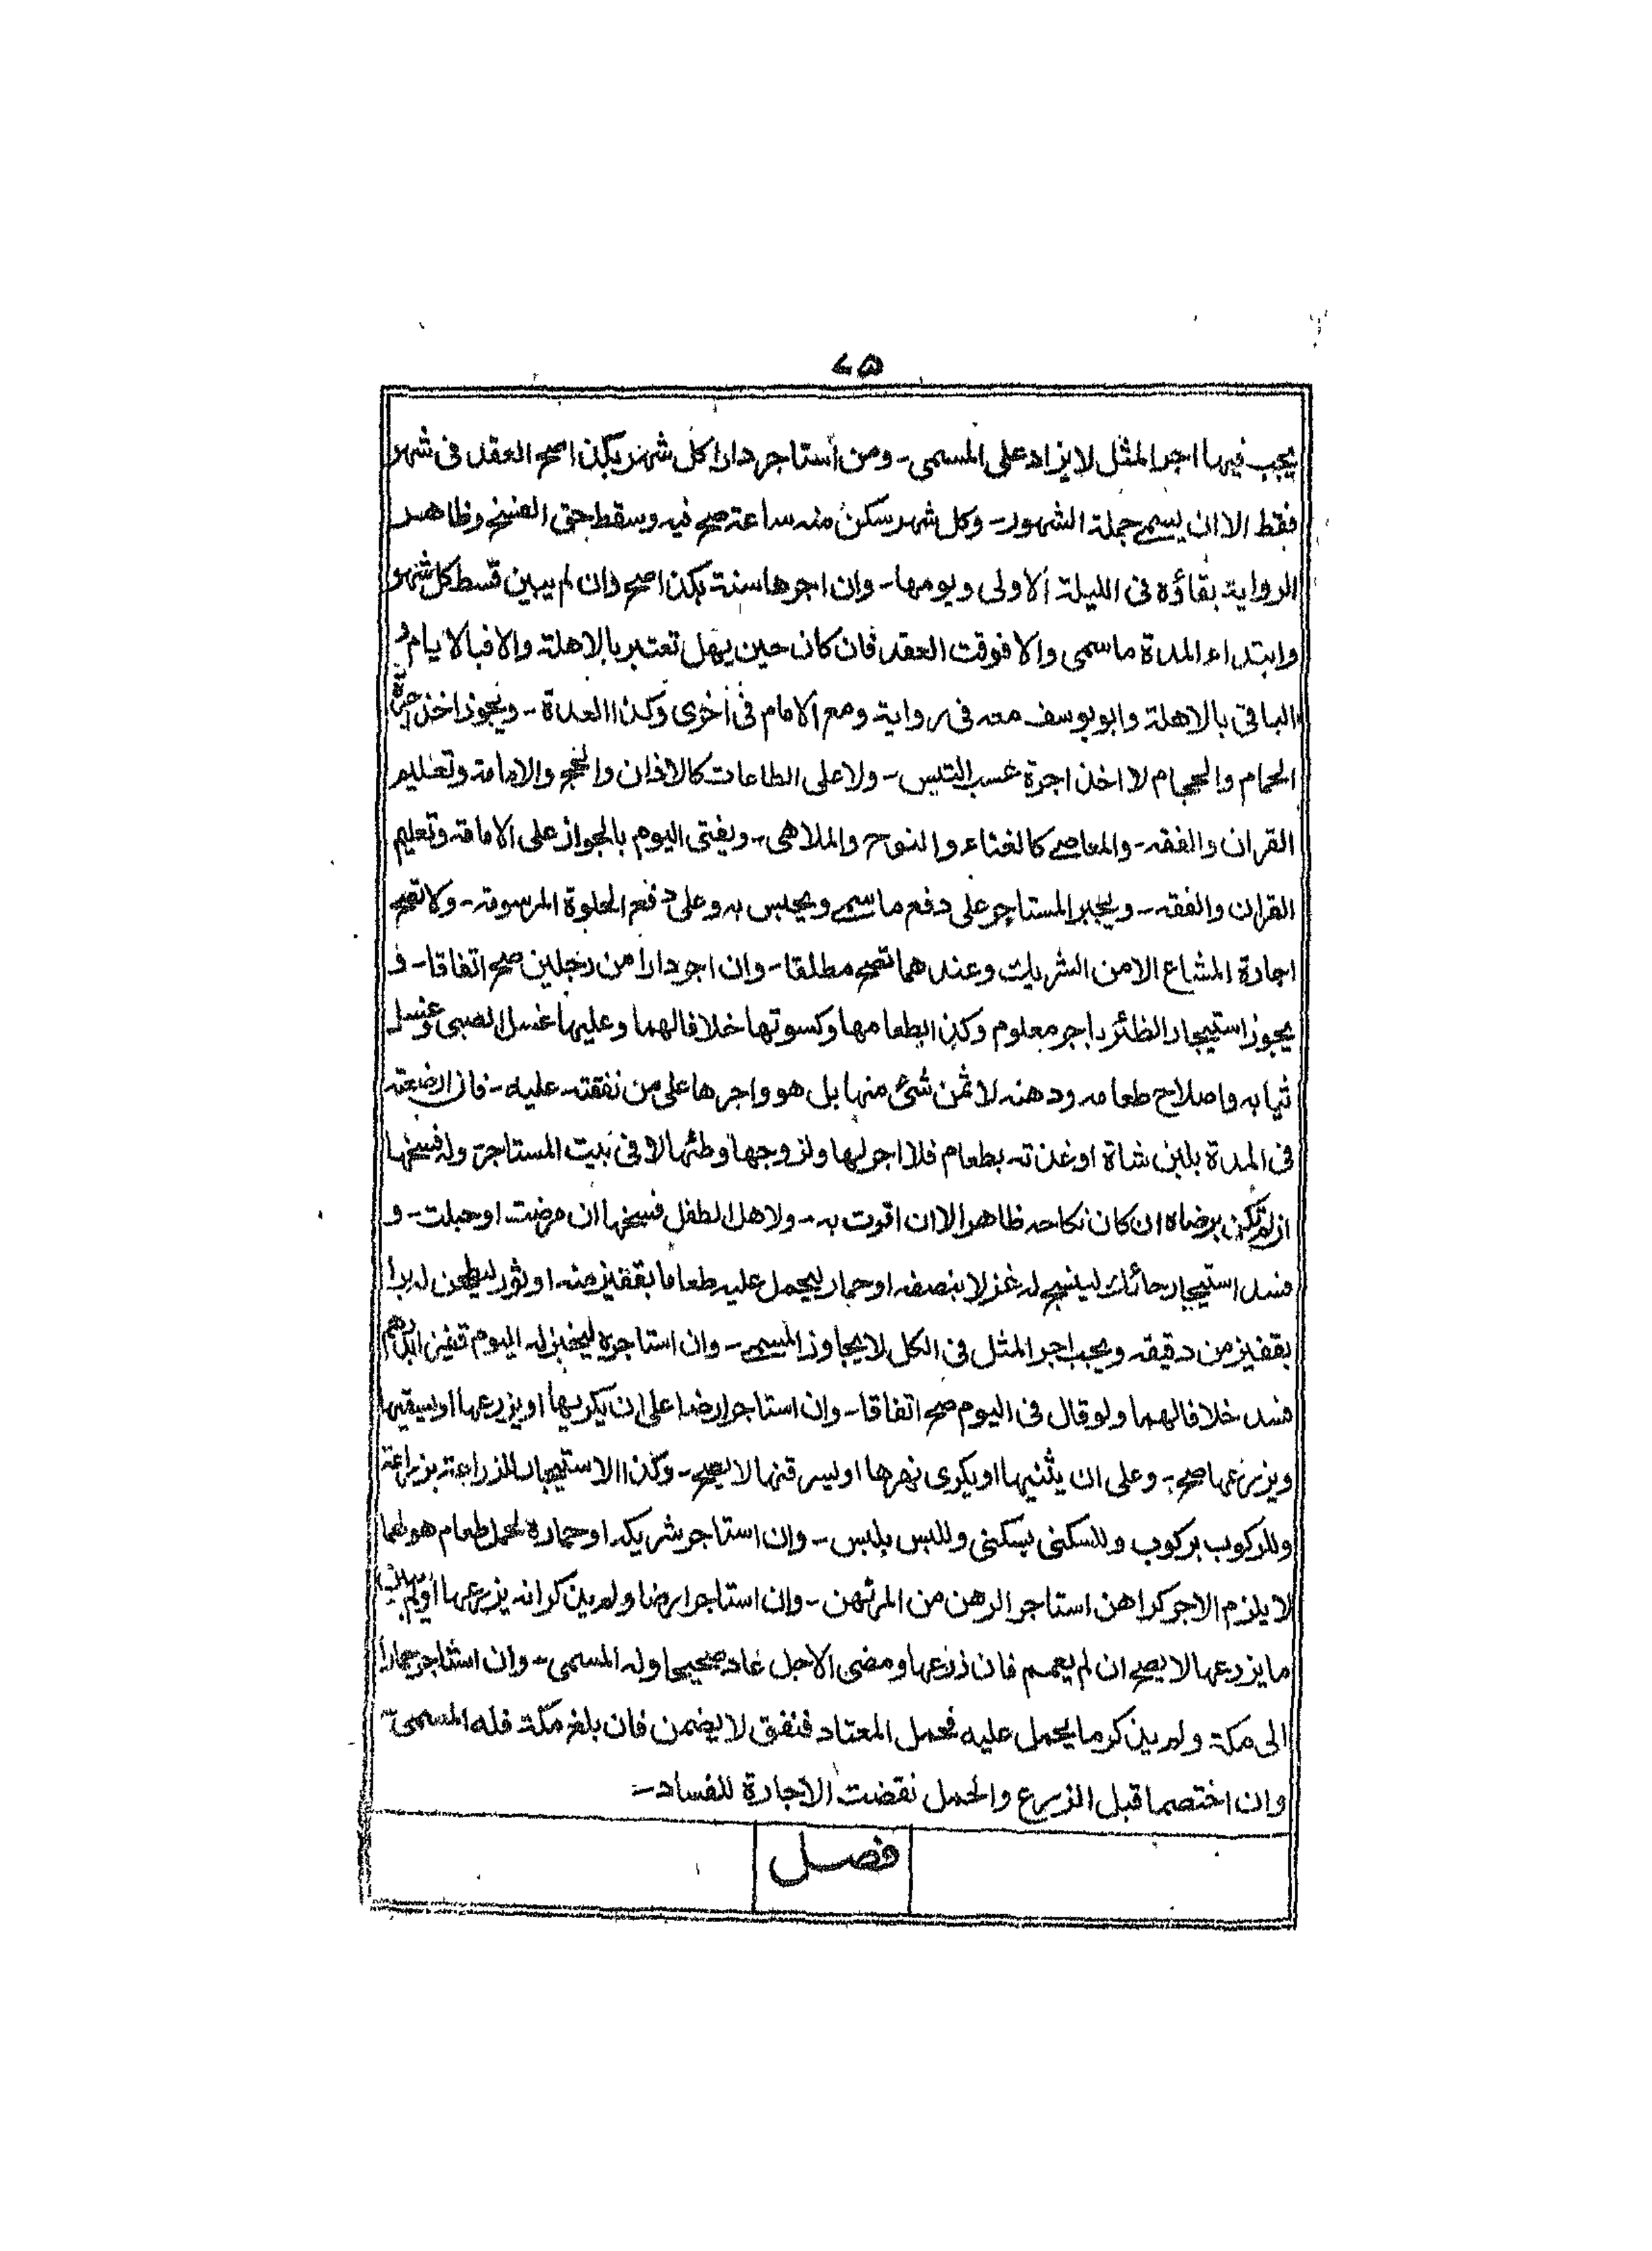 ٧٥
يجب فيها اجر المثل لا يزاد على المسمى۔ ومن استاجر دارا كل شهر بكذا صح العقد فى شهر
فقط الا ان يسمى جملة الشهور۔ وكل شهر سكن منه ساعة صح فيه وسقط حق الفسخ وظاهر
الرواية بقاؤه فى الليلة الاولى ويومها۔ وان اجرها سنة بكذا صح وان لم يبين قسط كل شهر و
وابتداء المدة ما سمى والا فوقت العقد فان كان حين يهل تعتبر بالاهلة والا فبالايام و
الباقى بالاهلة وابو يوسف معه فى رواية ومع الامام فى اخرى وكذا العدة۔ ويجوز اخذ اجرة
الحمام والحجام لا اخذ اجرة عسب التيس۔ ولا على الطاعات كالاذان والحج والامامة وتعليم
القران والفقه۔ والمعاصى كالغناء والنوح والملاهى۔ ويفتى اليوم بالجواز على الامامة وتعليم
القران والفقه۔ ويجبر المستاجر على دفع ما سمى ويحبس به وعلى دفع الحلوة المرسومة۔ ولا تصح
اجارة المشاع الا من الشريك وعندهما تصح مطلقا۔ وان اجر دارا من رجلين صح اتفاقا۔ و
يجوز استيجار الظئر باجر معلوم وكذا بطعامها وكسوتها خلافا لهما وعليها غسل الصبى وغسل
ثيابه واصلاح طعامه ودهنه لا ثمن شئ منها بل هو واجرها على من نفقته عليه۔ فان ارضعته
فى المدة بلبن شاة او غذته بطعام فلا اجر لها ولزوجها وطئها لا فى بيت المستاجر وله فسخها
ان لم تكن برضاه ان كان نكاحه ظاهرا لا ان اقرت به۔ ولاهل الطفل فسخها ان مرضت او حبلت۔ و
فسد استيجار حائك لينسج له غزلا بنصفه او حمار ليحمل عليه طعاما بقفيز منه او ثور ليطحن له برا
بقفيز من دقيقه ويجب اجر المثل فى الكل لا يجاوز المسمى۔ وان استاجره ليخبز له اليوم قفيزا بدرهم
فسد خلافا لهما ولو قال فى اليوم صح اتفاقا۔ وان استاجر ارضا على ان يكربها او يزرعها او يسقيها
ويزرعها صح۔ وعلى ان يثنيها او يكرى نهرها او يسرقنها لا يصح۔ وكذا الاستيجار للزراعة بزراعة
وللركوب بركوب وللسكنى بسكنى وللبس بلبس۔ وان استاجر شريكه او حماره لحمل طعام هو لهما
لا يلزم الاجر كراهن استاجر الرهن من المرتهن۔ وان استاجر ارضا ولم يذكر انه يزرعها او لم يبين
ما يزرعها لا يصح ان لم يعمم فان زرعها ومضى الاجل عاد صحيحا وله المسمى۔ وان استاجر حمارا
الى مكة ولم يذكر ما يحمل عليه فحمل المعتاد فنفق لا يضمن فان بلغ مكة فله المسمى
وان اختصما قبل الزرع والحمل نقضت الاجارة للفساد۔
فصل